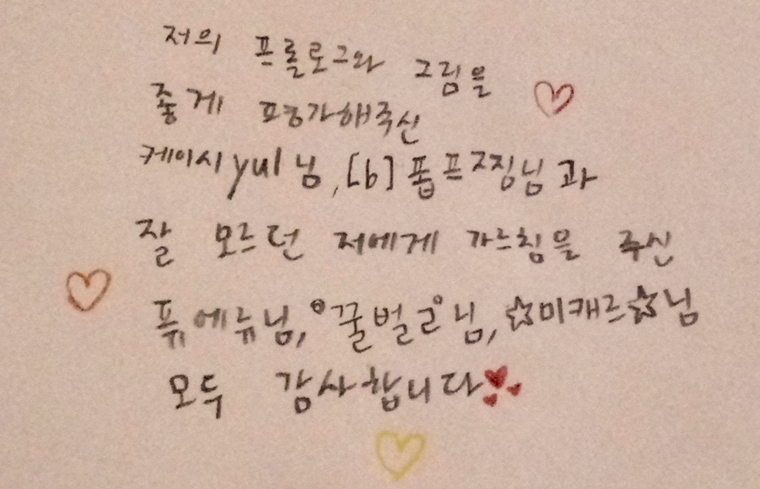 저의 프롤로그와 그림을
좋게 평가해주신
케이시yul님, [b]폽프찡님과
잘 모르던 저에게 가르침을 주신
퓨에뉴님, °꿀벌°님, ☆미캐르☆님
모두 감사합니다♥